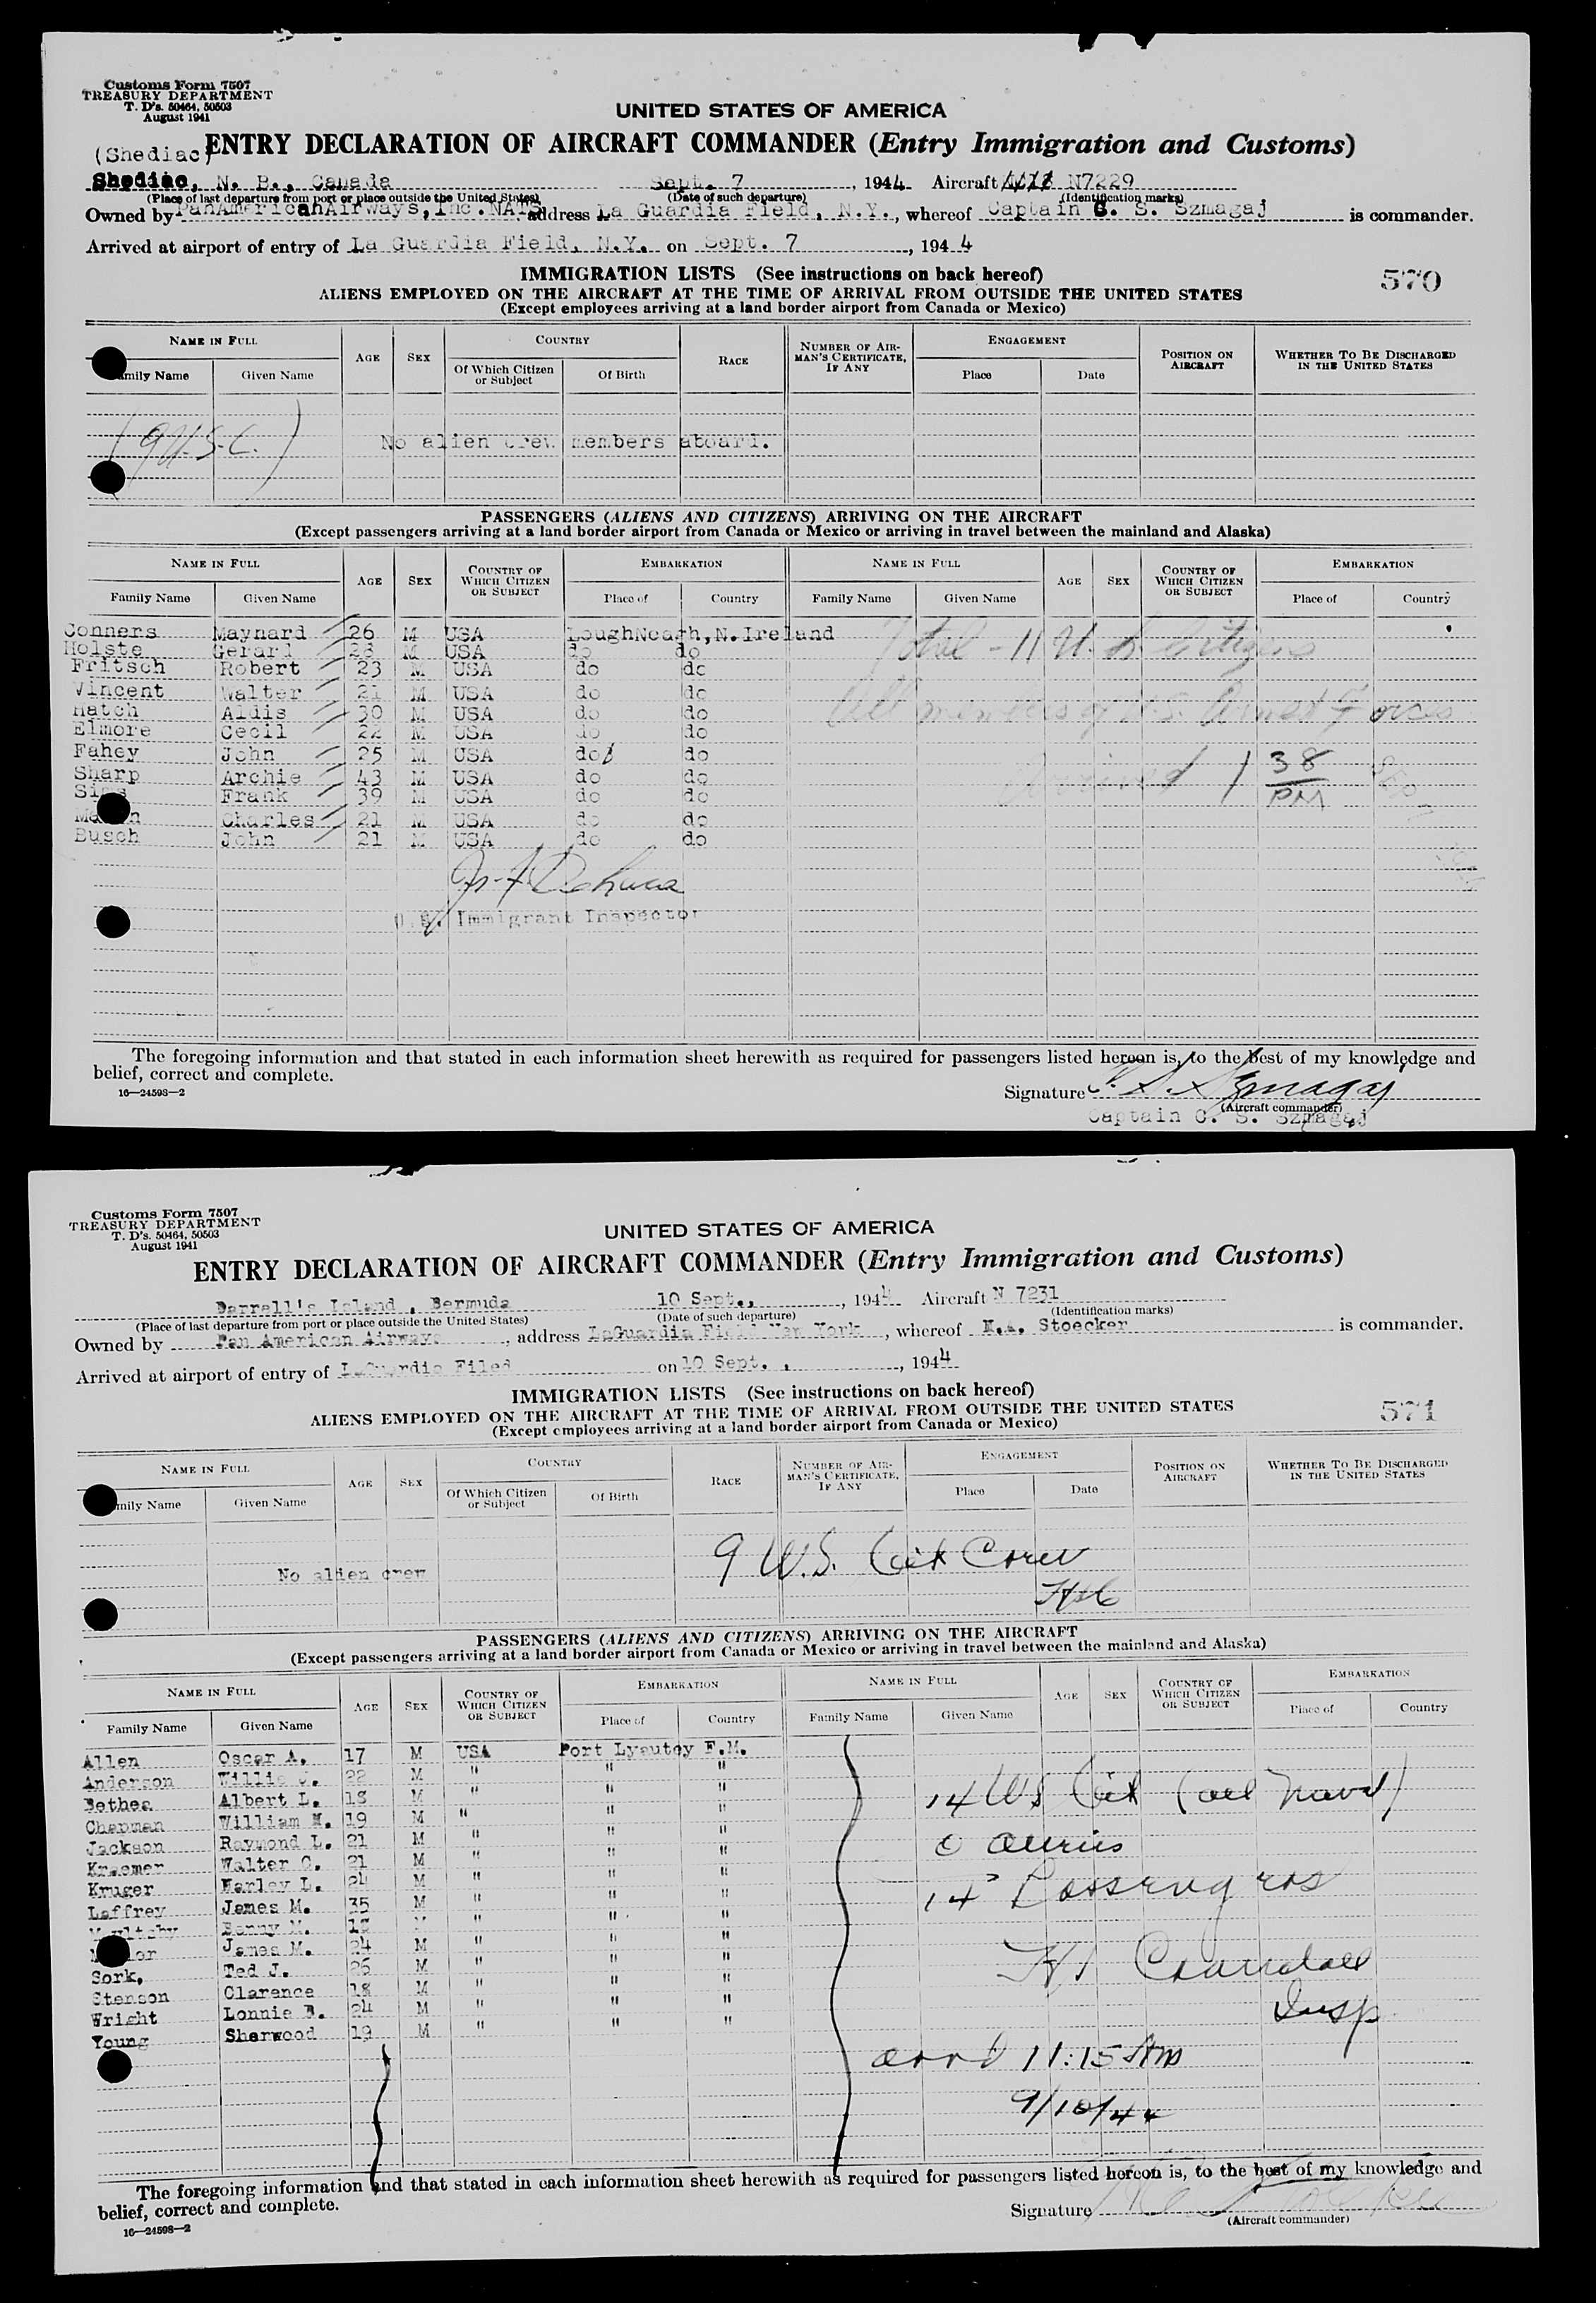 Customs Form 7507
TREASURY DEPARTMENT
T. D's. 50464, 50503
August 1941
UNITED STATES OF AMERICA
ENTRY DECLARATION OF AIRCRAFT COMMANDER (Entry Immigration and Customs)
(Shediac)
Shediac, N. B., Canada Sept. 7, 1944 Aircraft N7229
(Place of last departure from port or place outside the United States) (Date of such departure) (Identification marks)
Owned by PanAmericanAirways,Inc.NATS address La Guardia Field, N.Y., whereof Captain C. S. Szmagaj is commander.
Arrived at airport of entry of La Guardia Field, N.Y. on Sept. 7, 1944
IMMIGRATION LISTS (See instructions on back hereof)
570
ALIENS EMPLOYED ON THE AIRCRAFT AT THE TIME OF ARRIVAL FROM OUTSIDE THE UNITED STATES
(Except employees arriving at a land border airport from Canada or Mexico)
NAME IN FULL AGE SEX COUNTRY RACE NUMBER OF AIRMAN'S CERTIFICATE, IF ANY ENGAGEMENT POSITION ON AIRCRAFT WHETHER TO BE DISCHARGED IN THE UNITED STATES
Family Name Given Name Of Which Citizen or Subject Of Birth Place Date
(9 U.S.C.) No alien crew members aboard.
PASSENGERS (ALIENS AND CITIZENS) ARRIVING ON THE AIRCRAFT
(Except passengers arriving at a land border airport from Canada or Mexico or arriving in travel between the mainland and Alaska)
NAME IN FULL AGE SEX COUNTRY OF WHICH CITIZEN OR SUBJECT EMBARKATION NAME IN FULL AGE SEX COUNTRY OF WHICH CITIZEN OR SUBJECT EMBARKATION
Family Name Given Name Place of Country Family Name Given Name Place of Country
Conners Maynard 26 M USA LoughNeagh,N.Ireland Total - 11 U.S. Citizens
Holste Gerard 28 M USA do do
Fritsch Robert 23 M USA do do
Vincent Walter 21 M USA do do
Hatch Aldis 30 M USA do do All members of U.S. Armed Forces
Elmore Cecil 22 M USA do do
Fahey John 25 M USA do do
Sharp Archie 43 M USA do do Arrived 1 38 PM
Sims Frank 39 M USA do do
Charles 21 M USA do do
Busch John 21 M USA do do
U.S. Immigrant Inspector
The foregoing information and that stated in each information sheet herewith as required for passengers listed hereon is, to the best of my knowledge and
belief, correct and complete.
16—24598—2
Signature C. S. Szmagaj
(Aircraft commander)
Captain C. S. Szmagaj
Customs Form 7507
TREASURY DEPARTMENT
T. D's. 50464, 50503
August 1941
UNITED STATES OF AMERICA
ENTRY DECLARATION OF AIRCRAFT COMMANDER (Entry Immigration and Customs)
Darrell's Island , Bermuda 10 Sept., , 1944 Aircraft N 7231
(Place of last departure from port or place outside the United States) (Date of such departure) (Identification marks)
Owned by Pan American Airways, address LaGuardia Field New York, whereof K.A. Stoecker is commander.
Arrived at airport of entry of LaGuardia Filed on 10 Sept. , , 1944
IMMIGRATION LISTS (See instructions on back hereof)
571
ALIENS EMPLOYED ON THE AIRCRAFT AT THE TIME OF ARRIVAL FROM OUTSIDE THE UNITED STATES
(Except employees arriving at a land border airport from Canada or Mexico)
NAME IN FULL AGE SEX COUNTRY RACE NUMBER OF AIRMAN'S CERTIFICATE, IF ANY ENGAGEMENT POSITION ON AIRCRAFT WHETHER TO BE DISCHARGED IN THE UNITED STATES
Family Name Given Name Of Which Citizen or Subject Of Birth Place Date
9 U.S. Cit Crew
No alien crew
PASSENGERS (ALIENS AND CITIZENS) ARRIVING ON THE AIRCRAFT
(Except passengers arriving at a land border airport from Canada or Mexico or arriving in travel between the mainland and Alaska)
NAME IN FULL AGE SEX COUNTRY OF WHICH CITIZEN OR SUBJECT EMBARKATION NAME IN FULL AGE SEX COUNTRY OF WHICH CITIZEN OR SUBJECT EMBARKATION
Family Name Given Name Place of Country Family Name Given Name Place of Country
Allen Oscar A. 17 M USA Port Lyautey F.M.
Anderson Willie 22 M " " "
Bethea Albert L. 18 M " " " 14 US Cit (all Naval)
Chapman William H. 19 M " " "
Jackson Raymond L. 21 M " " " 0 Aliens
Kraemer Walter C. 21 M " " "
Kruger Harley L. 24 M " " " 14 Passengers
Laffrey James M. 35 M " " "
Benny M. 18 M " " "
James M. 24 M " " " Crandall
Sork, Ted J. 26 M " " "
Stenson Clarence 18 M " " " Insp
Wright Lonnie B. 24 M " " "
Young Sherwood 19 M " " "
arrd 11:15 AM
9/10/44
The foregoing information and that stated in each information sheet herewith as required for passengers listed hereon is, to the best of my knowledge and
belief, correct and complete.
16—24598—2
Signature
(Aircraft commander)